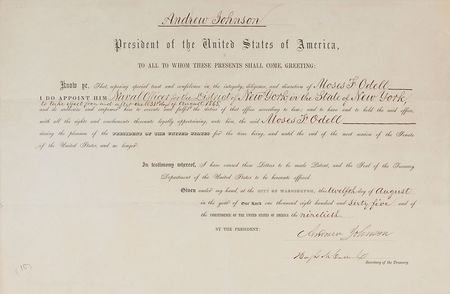 Andrew Johnson
President of the United States of America,
TO ALL TO WHOM THESE PRESENTS SHALL COME, GREETING:
Know ye, That, reposing special trust and confidence in the integrity, diligence, and discretion of Moses F. Odell
I DO APPOINT HIM Naval Officer for the District of New York in the State of New York,
to take effect from and after the 1865
and do authorize and empower him to execute and fulfil the duties of that office according to law; and to have and to hold the said office,
with all the rights and emoluments thereunto legally appertaining, unto him, the said Moses F. Odell
during the pleasure of the PRESIDENT OF THE UNITED STATES for the time being, and until the end of the next session of the Senate
of the United States, and no longer.
In testimony whereof, I have caused these Letters to be made Patent, and the Seal of the Treasury
Department of the United States to be hereunto affixed.
Given under my hand, at the CITY OF WASHINGTON, this twelfth day of August
in the year of our Lord one thousand eight hundred and Sixty five and of
the INDEPENDENCE OF THE UNITED STATES OF AMERICA the ninetieth.
BY THE PRESIDENT:
Andrew Johnson
Secretary of the Treasury.